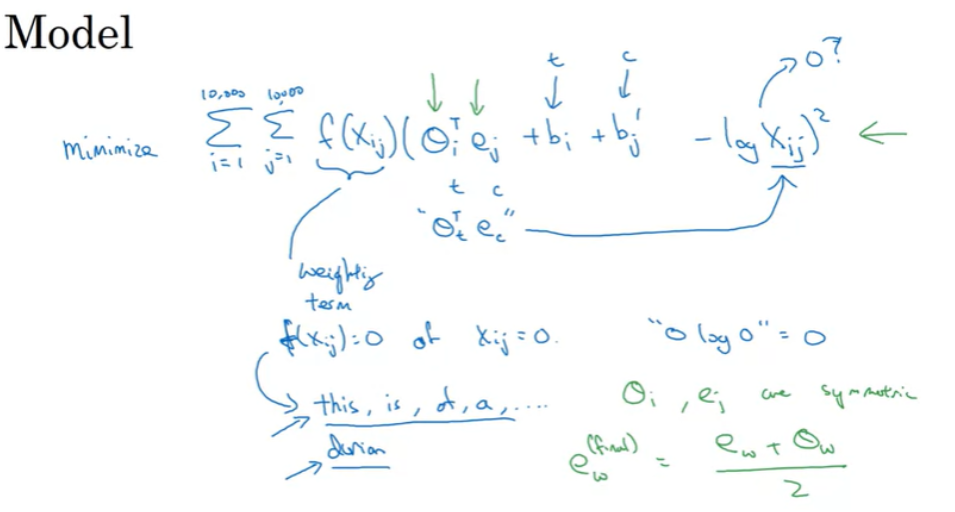 Model
minimize Σ_{i=1}^{10,000} Σ_{j=1}^{10,000} f(X_{ij}) (θ_i^T e_j + b_i + b_j' - log X_{ij})^2
t c
0?
t c
"θ_t^T e_c"
weighting
term
f(X_{ij}) = 0 if X_{ij} = 0. "0 log 0" = 0
this, is, of, a, ....
durian
θ_i, e_j are symmetric
e_w^{(final)} = (e_w + θ_w) / 2